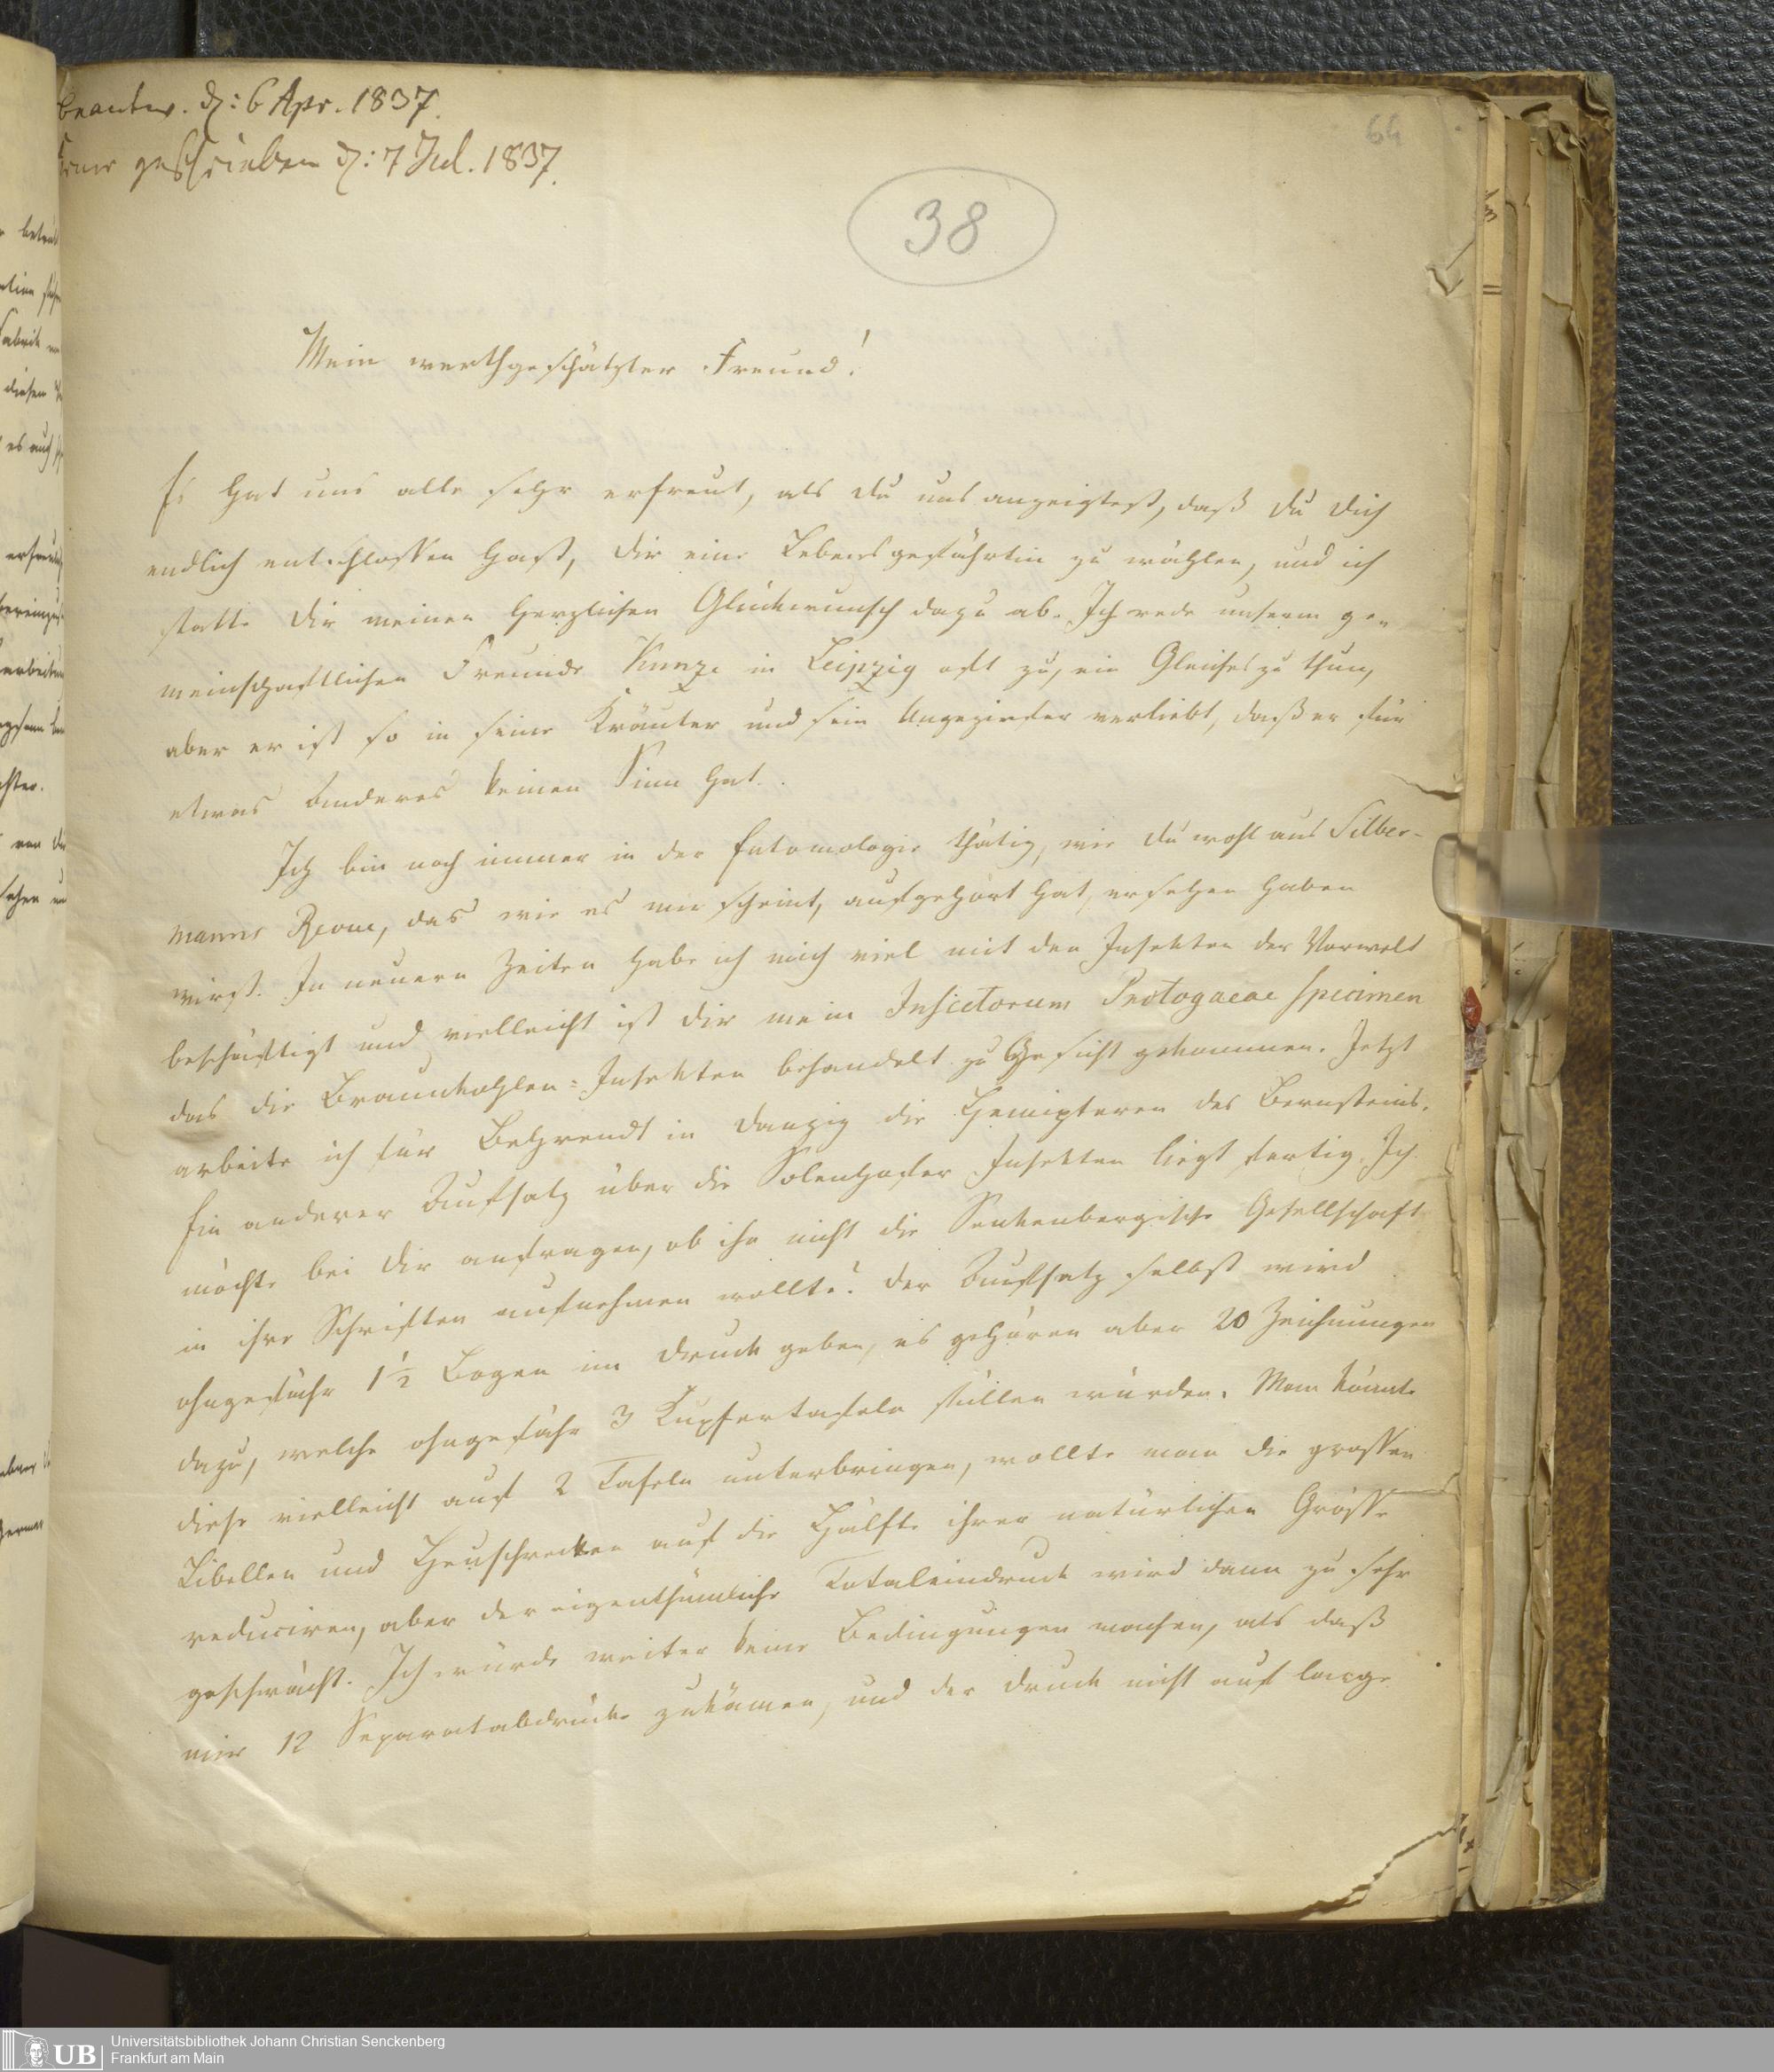 beantw. d: 6 Apr. 1837.
geschrieben d: 7 Jul. 1837.
64
38
Mein werthgeschätzter Freund!
Es hat uns alle sehr erfreut, als du uns anzeigtest, daß du dich
endlich entschlossen hast, dir eine Lebensgefährtin zu wählen, und ich
statte dir meinen herzlichen Glückwunsch dazu ab. Ich rede unserm ge-
meinschaftlichen Freunde Kunze in Leipzig oft zu, ein Gleiches zu thun,
aber er ist so in seine Kräuter und sein Ungeziefer verliebt, daß er für
etwas Anderes keinen Sinn hat.
Ich bin noch immer in der Entomologie thätig, wie du wohl aus Silber-
manns Revue, das wie es mir scheint, aufgehört hat, ersehen haben
wirst. In neuern Zeiten habe ich mich viel mit den Insekten der Vorwelt
beschäftigt und vielleicht ist dir mein Insectorum Protogaeae specimen
das die Braunkohlen-Insekten behandelt zu Gesicht gekommen. Jetzt
arbeite ich für Behrendt in Danzig die Hemipteren des Bernsteins.
Ein anderer Aufsatz über die Solenhofer Insekten liegt fertig. Ich
möchte bei dir anfragen, ob ihn nicht die Senkenbergische Gesellschaft
in ihre Schriften aufnehmen wollte? Der Aufsatz selbst wird
ohngefähr 1½ Bogen im Druck geben, es gehören aber 20 Zeichnungen
dazu, welche ohngefähr 3 Kupfertafeln füllen würden. Man könnte
diese vielleicht auf 2 Tafeln unterbringen, wollte man die grossen
Libellen und Heuschrecken auf die Hälfte ihrer natürlichen Grösse
reduciren, aber der eigenthümliche Totaleindruck wird dann zu sehr
geschwächt. Ich würde weiter keine Bedingungen machen, als daß
mir 12 Separatabdrücke zukämen, und der Druck nicht auf lange
UB
Universitätsbibliothek Johann Christian Senckenberg
Frankfurt am Main